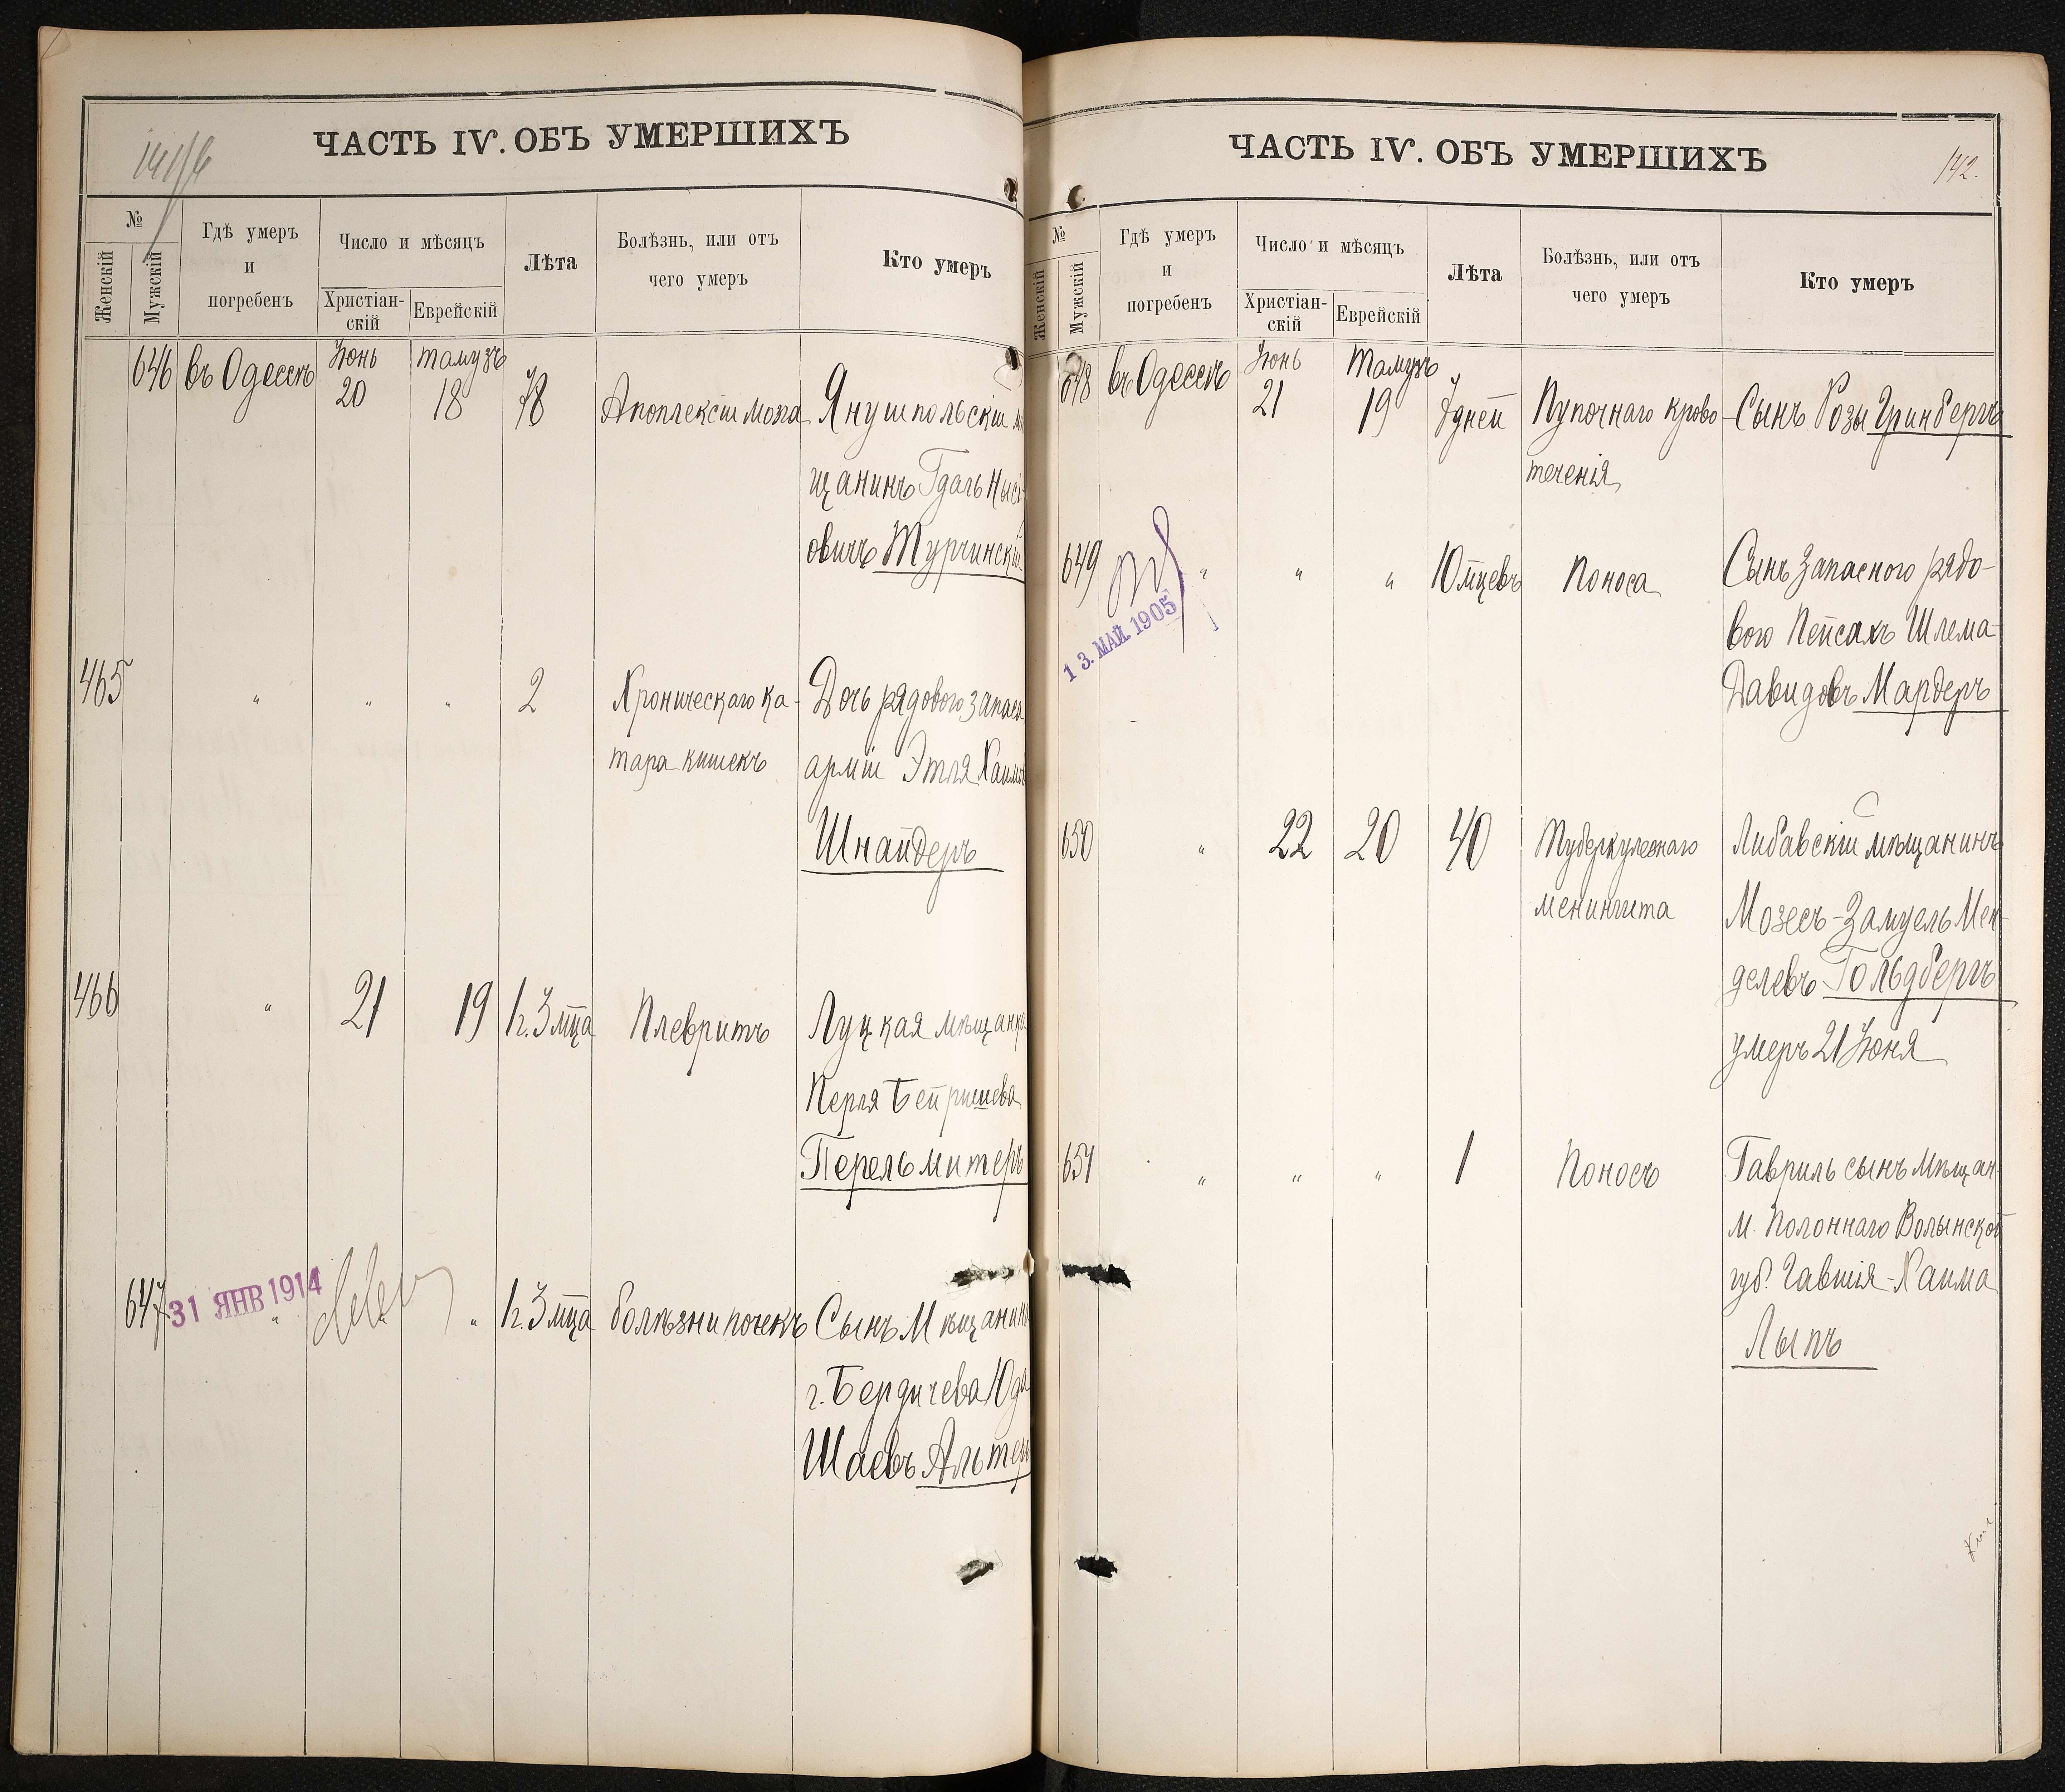 ЧАСТЬ IV. ОБЪ УМЕРШИХЪ
№
Женскій
Мужскій
Гдѣ умеръ
и
погребенъ
Число и мѣсяцъ
Христіан-
скій
Еврейскій
Лѣта
Болѣзнь, или отъ
чего умеръ
Кто умеръ
646 въ Одессѣ Іюнь 20 тамузъ 18 78 Апоплексіи мозга Янушпольскій
щанинъ Гдаль Нысі-
овичъ Турчинскій
465 " " " 2 Хроническаго ка- Дочь рядового запаса
тара кишекъ арміи Этля Хаимо
Шнайдеръ
466 " 21 19 1г. 3 мца Плевритъ Луцкая мѣщанка
Перля Бейришева
Перельмитеръ
647 31 ЯНВ 1914 " " 1г. 3 мца болѣзни почекъ Сынъ Мѣщанина
г. Бердичева Юда
Шаевъ Альтеръ
ЧАСТЬ IV. ОБЪ УМЕРШИХЪ
142.
№
Женскій
Мужскій
Гдѣ умеръ
и
погребенъ
Число и мѣсяцъ
Христіан-
скій
Еврейскій
Лѣта
Болѣзнь, или отъ
чего умеръ
Кто умеръ
648 въ Одессѣ Іюнь 21 Тамузъ 19 7 дней Пупочнаго крово- Сынъ Розы Гринбергъ
теченія
649 " " " 10 мцевъ Поноса Сынъ Запасного рядо-
13. МАЙ. 1905
вого Пейсахъ Шлема
Давидовъ Мардеръ
650 " 22 20 40 Туберкулезнаго Либавскій мѣщанинъ
менингита Мозесъ-Замуель Мен-
делевъ Гольдбергъ
умеръ 21 Іюня
651 " " " 1 Поносъ Гавриль сынъ мѣщан.
м. Полоннаго Волынской
губ. Гавшія-Хаима
Лыпъ